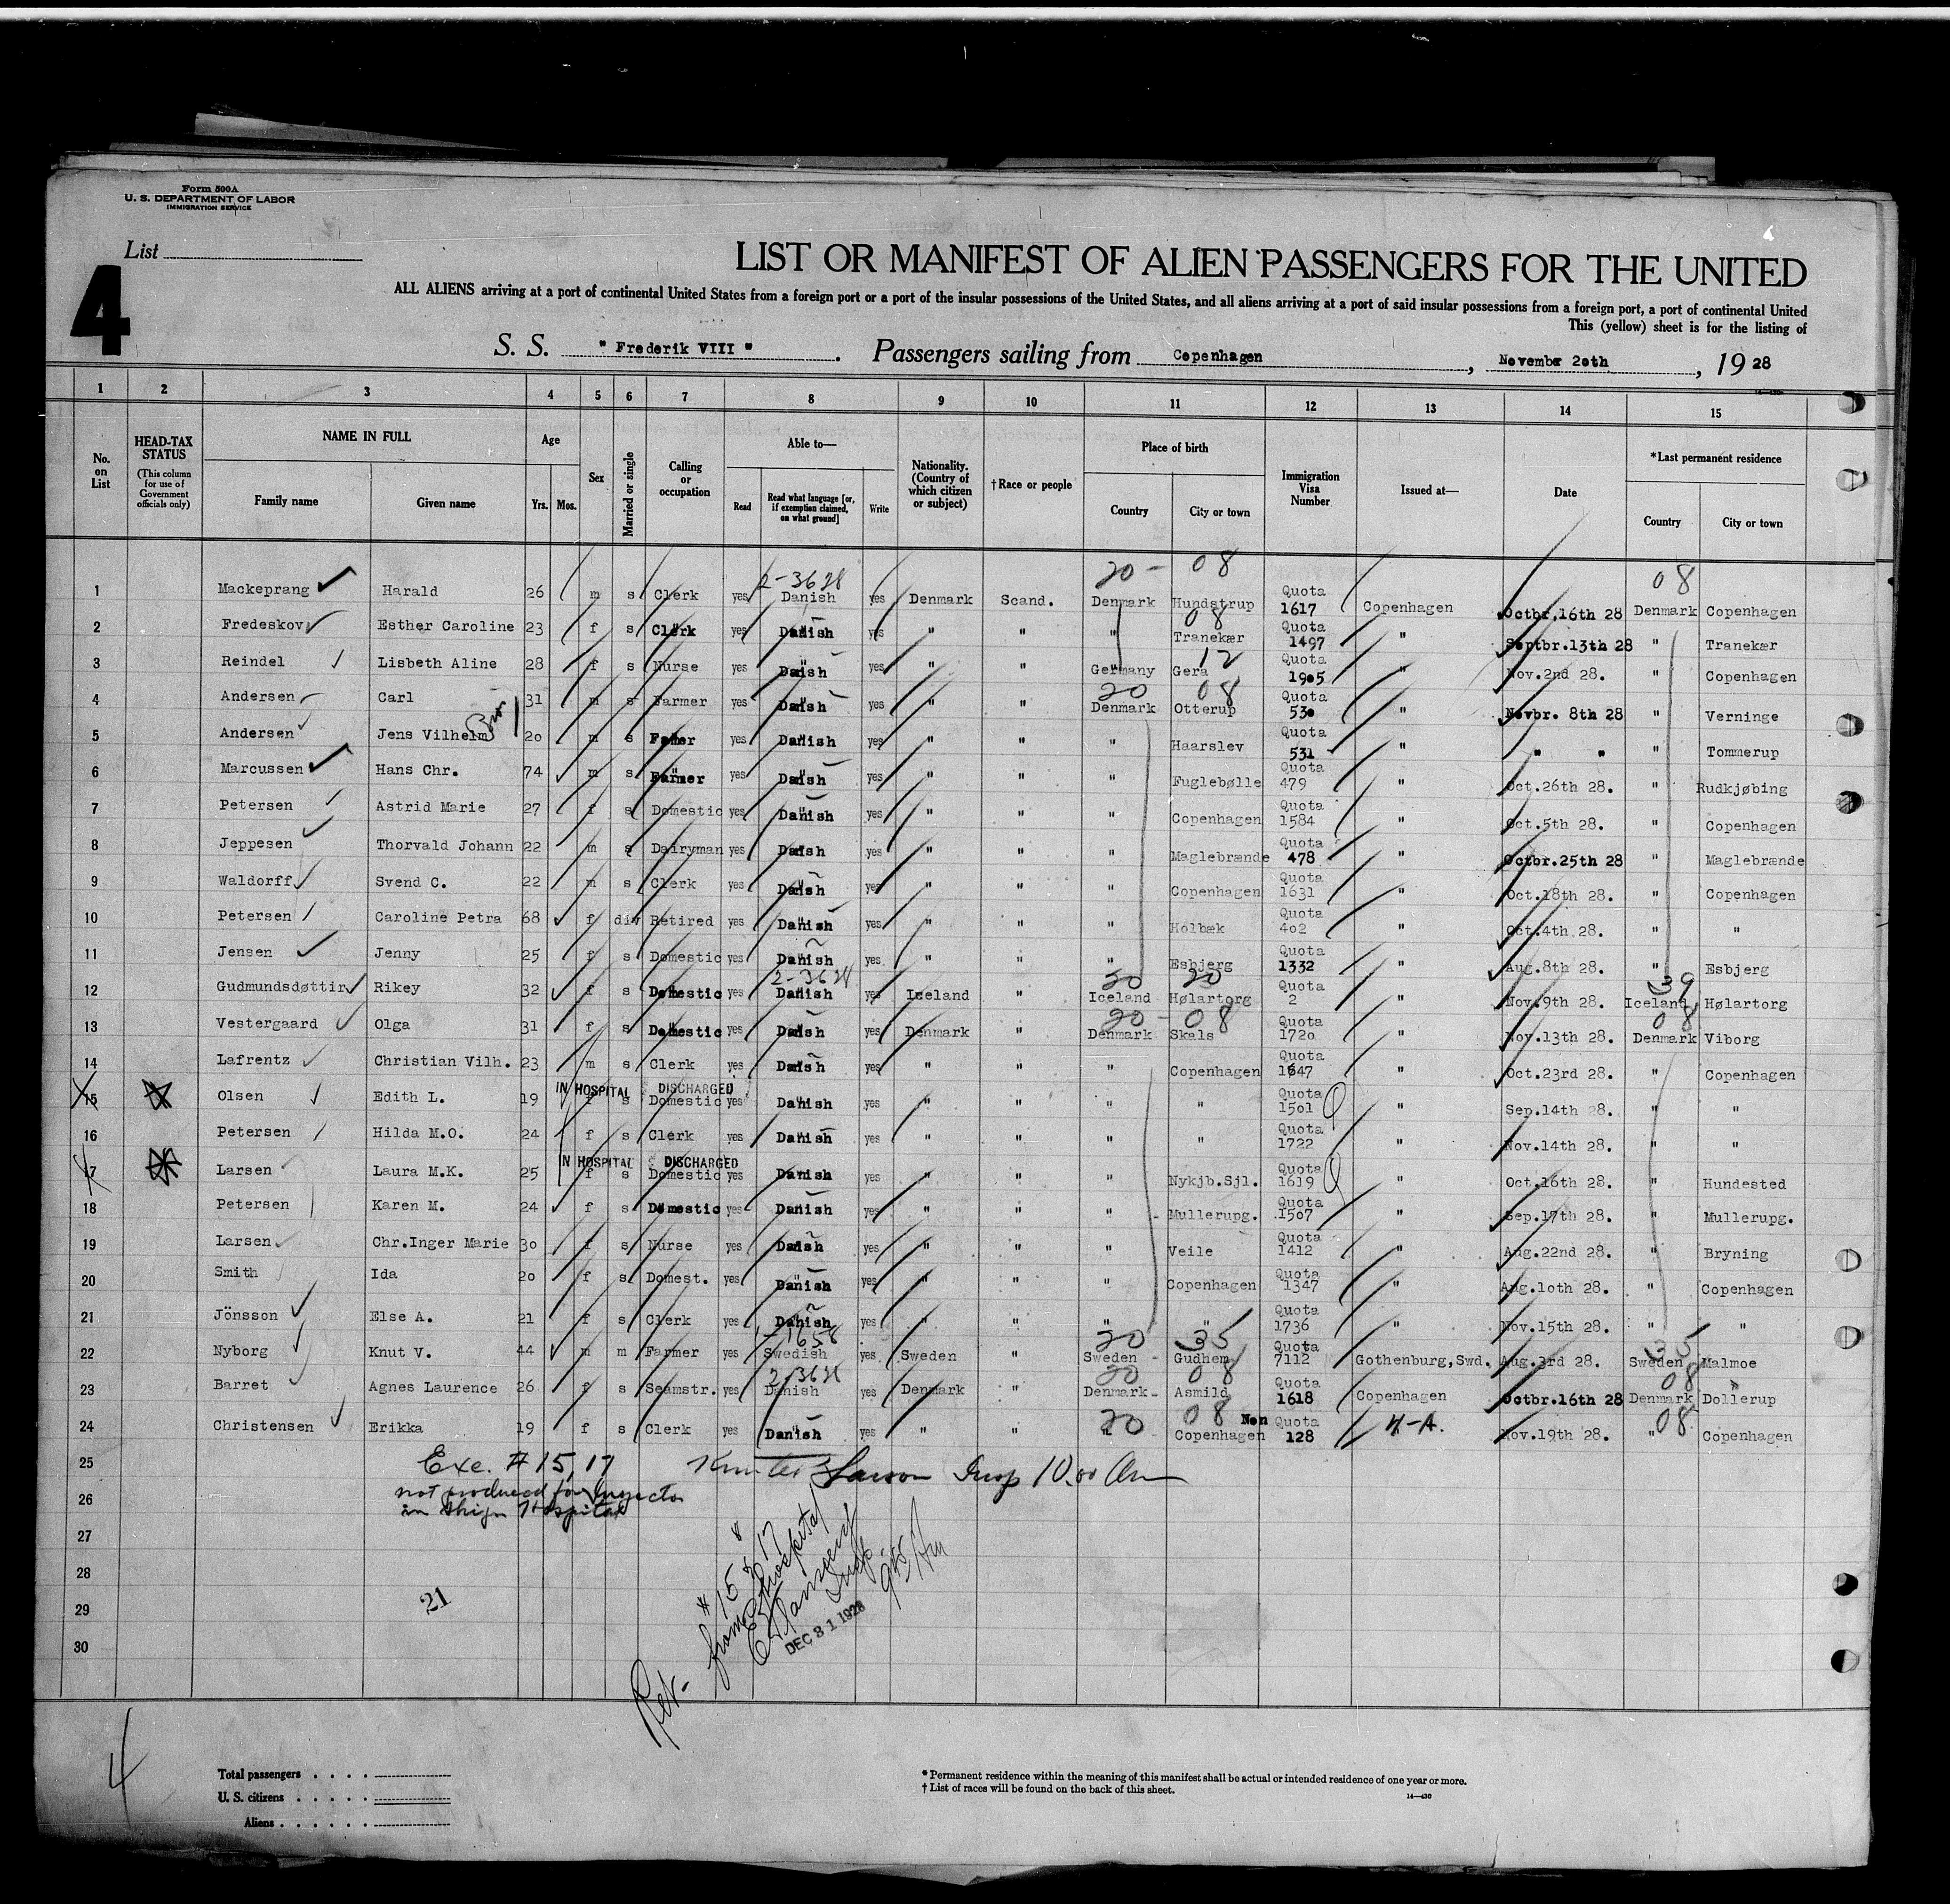 Form 500A
U. S. DEPARTMENT OF LABOR
IMMIGRATION SERVICE
List
4
LIST OR MANIFEST OF ALIEN PASSENGERS FOR THE UNITED
ALL ALIENS arriving at a port of continental United States from a foreign port or a port of the insular possessions of the United States, and all aliens arriving at a port of said insular possessions from a foreign port, a port of continental United
This (yellow) sheet is for the listing of
S. S. " Frederik VIII " . Passengers sailing from Copenhagen , November 20th , 19 28
1 2 3 4 5 6 7 8 9 10 11 12 13 14 15
No. on List
HEAD-TAX STATUS (This column for use of Government officials only)
NAME IN FULL
Family name Given name
Age
Yrs. Mos.
Sex
Married or single
Calling or occupation
Able to—
Read
Read what language [or, if exemption claimed, on what ground]
Write
Nationality. (Country of which citizen or subject)
†Race or people
Place of birth
Country City or town
Immigration Visa Number
Issued at—
Date
*Last permanent residence
Country City or town
2-3628 20 - 08 08
1 Mackeprang Harald 26 m s Clerk yes Danish yes Denmark Scand. Denmark Hundstrup Quota 1617 Copenhagen Octbr.16th 28 Denmark Copenhagen
08
2 Fredeskov Esther Caroline 23 f s Clerk yes Danish yes " " " Tranekær Quota 1497 " Septbr.13th 28 " Tranekær
12
3 Reindel Lisbeth Aline 28 f s Nurse yes Danish yes " " Germany Gera Quota 1905 " Nov.2nd 28. " Copenhagen
20 08
4 Andersen Carl 31 m s Farmer yes Danish yes " " Denmark Otterup Quota 530 " Novbr. 8th 28 " Verninge
5 Andersen Jens Vilhelm Bro. 20 m s Farmer yes Danish yes " " " Haarslev Quota 531 " " " " Tommerup
6 Marcussen Hans Chr. 74 m s Farmer yes Danish yes " " " Fuglebølle Quota 479 " Oct.26th 28. " Rudkjøbing
7 Petersen Astrid Marie 27 f s Domestic yes Danish yes " " " Copenhagen Quota 1584 " Oct.5th 28. " Copenhagen
8 Jeppesen Thorvald Johann 22 m s Dairyman yes Danish yes " " " Maglebrænde Quota 478 " Octbr.25th 28 " Maglebrænde
9 Waldorff Svend C. 22 m s Clerk yes Danish yes " " " Copenhagen Quota 1631 " Oct.18th 28. " Copenhagen
10 Petersen Caroline Petra 68 f div Retired yes Danish yes " " " Holbæk Quota 402 " Oct.4th 28. " "
11 Jensen Jenny 25 f s Domestic yes Danish yes " " " Esbjerg Quota 1332 " Aug.8th 28. " Esbjerg
2-3628 20 20 39
12 Gudmundsdøttir Rikey 32 f s Domestic yes Danish yes Iceland " Iceland Hølartorg Quota 2 " Nov.9th 28. Iceland Hølartorg
20 - 08 08
13 Vestergaard Olga 31 f s Domestic yes Danish yes Denmark " Denmark Skals Quota 1720 " Nov.13th 28. Denmark Viborg
14 Lafrentz Christian Vilh. 23 m s Clerk yes Danish yes " " " Copenhagen Quota 1647 " Oct.23rd 28. " Copenhagen
IN HOSPITAL DISCHARGED
15 Olsen Edith L. 19 f s Domestic yes Danish yes " " " " Quota 1501 " Sep.14th 28. " "
16 Petersen Hilda M.O. 24 f s Clerk yes Danish yes " " " " Quota 1722 " Nov.14th 28. " "
IN HOSPITAL DISCHARGED
17 Larsen Laura M.K. 25 f s Domestic yes Danish yes " " " Nykjb.Sjl. Quota 1619 " Oct.16th 28. " Hundested
18 Petersen Karen M. 24 f s Domestic yes Danish yes " " " Mullerupg. Quota 1507 " Sep.17th 28. " Mullerupg.
19 Larsen Chr.Inger Marie 30 f s Nurse yes Danish yes " " " Veile Quota 1412 " Aug.22nd 28. " Bryning
20 Smith Ida 20 f s Domest. yes Danish yes " " " Copenhagen Quota 1347 " Aug.10th 28. " Copenhagen
21 Jönsson Else A. 21 f s Clerk yes Danish yes " " " " Quota 1736 " Nov.15th 28. " "
1-1658 20 35 35
22 Nyborg Knut V. 44 m m Farmer yes Swedish yes Sweden " Sweden - Gudhem Quota 7112 Gothenburg,Swd. Aug.3rd 28. Sweden Malmoe
2-3628 20 08 08
23 Barret Agnes Laurence 26 f s Seamstr. yes Danish yes Denmark " Denmark- Asmild Quota 1618 Copenhagen Octbr.16th 28 Denmark Dollerup
20 08 08
24 Christensen Erikka 19 f s Clerk yes Danish yes " " " Copenhagen Non Quota 128 4-A. Nov.19th 28. " Copenhagen
25 Exe. # 15, 17 Insp 10.00 Am
26 not produced for Inspector
in ship's Hospital
27
28
29
30
21
Ret. # 15 & 17
from Hospital
Insp.
DEC 31 1928
4
Total passengers . . . .
U. S. citizens . . . . .
Aliens . . . . . .
* Permanent residence within the meaning of this manifest shall be actual or intended residence of one year or more.
† List of races will be found on the back of this sheet.
14—430